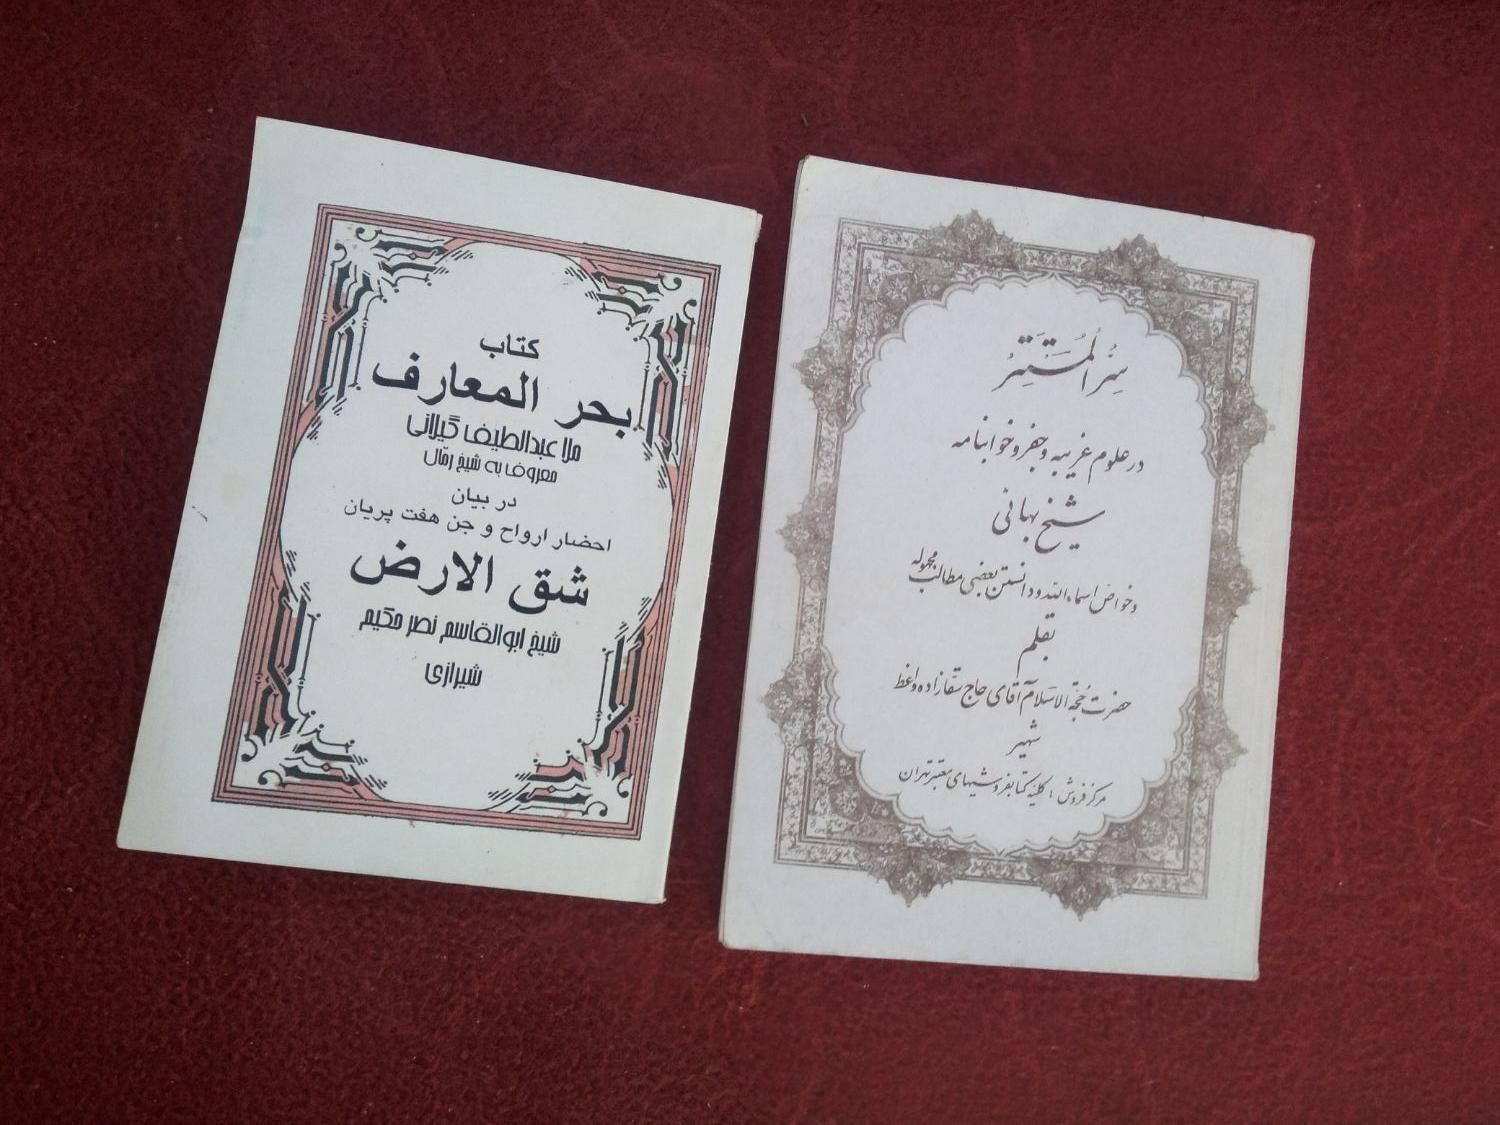 کتاب
بحر المعارف
ملا عبدالطیف گیلانی
معروف به شیخ رمّال
در بیان
احضار ارواح و جن هفت پریان
شق الارض
شیخ ابوالقاسم نصر حکیم
شیرازی
سِرُّ المُستَتِر
در علوم غریبه و جفر و خوابنامه
شیخ بهائی
و خواص اسماء الله و دانستن بعضی مطالب مجهوله
بقلم
حضرت حُجّة الاسلام آقای حاج سقازاده واعظ
شهیر
مرکز فروش: کلیه کتابفروشیهای معتبر تهران